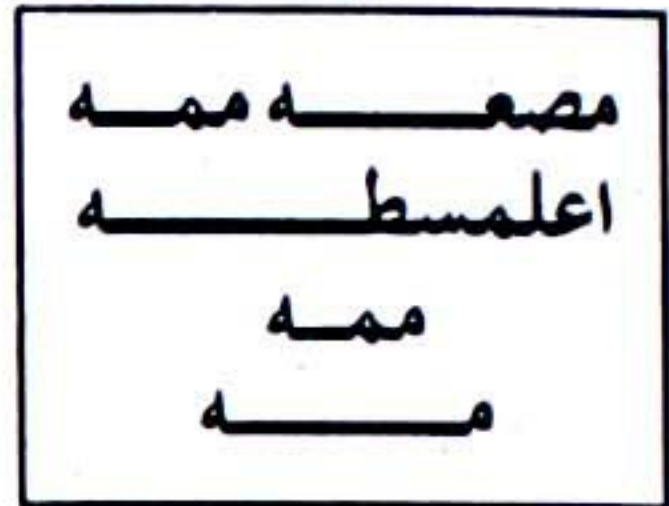 مصعـــــــه ممـــه
اعلمسطــــــــــــه
ممـــه
مــــــــه